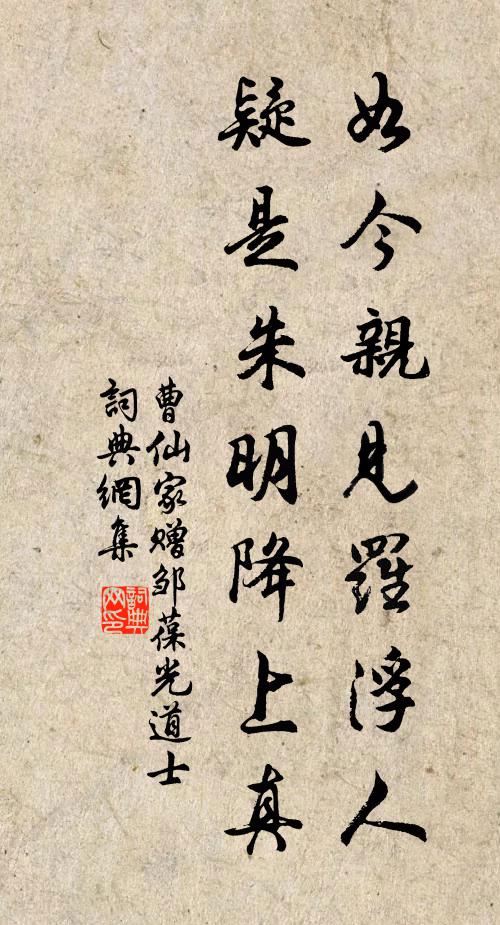 如今親見羅浮人
疑是朱明降上真
曹仙家赠邹葆光道士
詞典網集
詞典网印